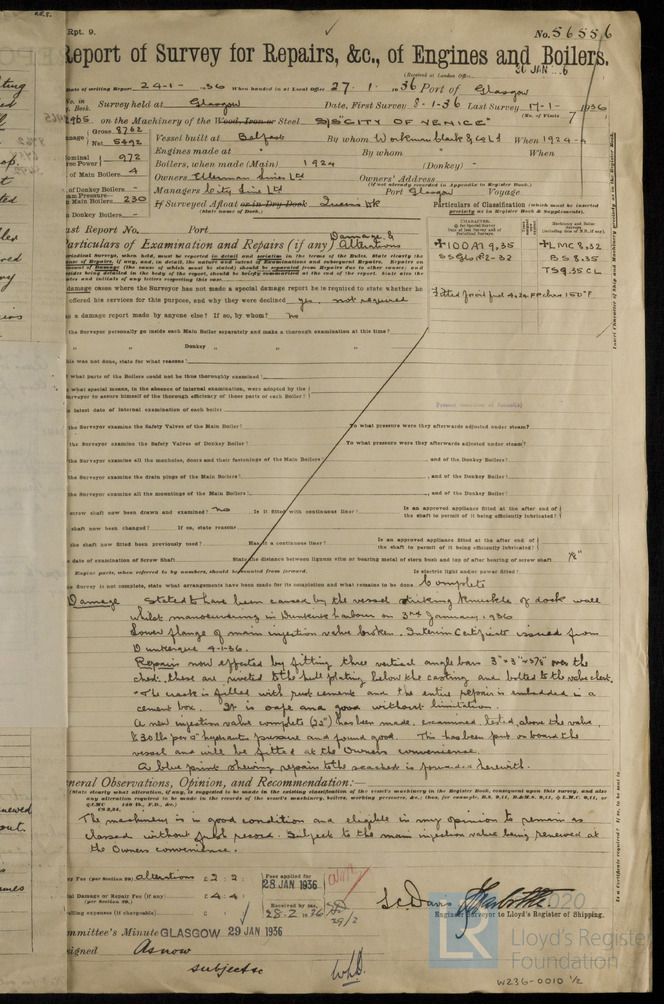 Rpt. 9.
No. 56556
Report of Survey for Repairs, &c., of Engines and Boilers.
(Received at London Office
30 JAN
Date of writing Report 24-1- 1936 When handed in at Local Office 27. 1. 1936 Port of Glasgow
No. in Reg. Book. Survey held at Glasgow Date, First Survey 8-1-36 Last Survey 17-1-1936
(No. of Visits 7)
on the Machinery of the Wood, Iron or Steel S/S "CITY OF VENICE"
Gross 8762
Net 5492
Vessel built at Belfast By whom Workman Clark & Co Ld When 1924-4
Engines made at " By whom " When "
Nominal Horse Power 972
Boilers, when made (Main) 1924 (Donkey) -
No. of Main Boilers 4
Owners Ellerman Lines Ltd Owners' Address
(If not already recorded in Appendix to Register Book.)
No. of Donkey Boilers -
Managers City Line Ltd Port Glasgow Voyage
Steam Pressure in Main Boilers 230
If Surveyed Afloat or in Dry Dock Queens Dk
(State name of Dock.)
in Donkey Boilers -
Particulars of Classification (which must be inserted precisely as in Register Book & Supplements).
Last Report No. Port
Particulars of Examination and Repairs (if any) Damage & Alterations
+100A1 9,35
SS Gls No2-32
+LMC 8,32
BS 8,35
TS 9.35 CL
Fitted for oil fuel 4.24 FP above 150°F
damage cases where the Surveyor has not made a special damage report he is required to state whether he
offered his services for this purpose, and why they were declined yes. not required
Was a damage report made by anyone else? If so, by whom? no
Did the Surveyor personally go inside each Main Boiler separately and make a thorough examination at this time?
" " Donkey " " " "
If this was not done, state for what reasons?
what parts of the Boilers could not be thus thoroughly examined?
what special means, in the absence of internal examination, were adopted by the
Surveyor to assure himself of the thorough efficiency of those parts of each Boiler?
latest date of internal examination of each boiler
Did the Surveyor examine the Safety Valves of the Main Boiler? To what pressure were they afterwards adjusted under steam?
Did the Surveyor examine the Safety Valves of Donkey Boiler? To what pressure were they afterwards adjusted under steam?
Did the Surveyor examine all the manholes, doors and their fastenings of the Main Boilers? , and of the Donkey Boilers?
Did the Surveyor examine the drain plugs of the Main Boilers? , and of the Donkey Boiler?
Did the Surveyor examine all the mountings of the Main Boilers? , and of the Donkey Boiler?
screw shaft now been drawn and examined? no Is it fitted with continuous liner? Is an approved appliance fitted at the after end of the shaft to permit of it being efficiently lubricated?
shaft now been changed? If so, state reasons
the shaft now fitted been previously used? Has it a continuous liner? Is an approved appliance fitted at the after end of the shaft to permit of it being efficiently lubricated?
date of examination of Screw Shaft State the distance between lignum vitæ or bearing metal of stern bush and top of after bearing of screw shaft
Engine parts, when referred to by numbers, should be counted from forward. Is electric light and/or power fitted?
Survey is not complete, state what arrangements have been made for its completion and what remains to be done Complete
Damage Stated to have been caused by the vessel striking knuckle of dock wall
whilst manoeuvring in Dunkerk harbour on 3rd January, 1936
Lower flange of main injection valve broken. Interim Certificate issued from
Dunkerque 4-1-36.
Repairs now effected by fitting three vertical angle bars 3" x 3" x 3/8" over the
chest. these are riveted to the hull plating below the casting and bolted to the valve chest.
The crack is filled with rust cement and the entire repair is embedded in a
cement box. It is safe and good without limitation.
A new injection valve complete has been made. examined. tested, above the valve,
to 30 lbs per □" hydraulic pressure and found good. This has been put on board the
vessel and will be fitted at the Owners convenience.
A blue print shewing repairs to the seachest is forwarded herewith.
General Observations, Opinion, and Recommendation:—
(State clearly what alteration, if any, is suggested to be made in the existing classification of the vessel's machinery in the Register Book, consequent upon this survey, and also
any alteration required to be made in the records of the vessel's machinery, boilers, working pressures, &c.; thus, for example, B.S. 9.11, B.&M.S. 9.11, or L.M.C. 9.11, or
The machinery is in good condition and eligible in my opinion to remain as
classed without fresh record. Subject to the main injection valve being renewed at
the Owners convenience.
Survey Fee (per Section 29) alterations £ 2 : 2 :
Special Damage or Repair Fee (if any) (per Section 29.) £ 4 : 4 :
Travelling expenses (if chargeable) £
Fees applied for
28 JAN 1936
Received by me,
28.2.1936
S.C. Davis
Engineer Surveyor to Lloyd's Register of Shipping.
Committee's Minute GLASGOW 29 JAN 1936
Assigned As now
subject &c
LR
2020
Lloyd's Register
Foundation
W236-0010 1/2